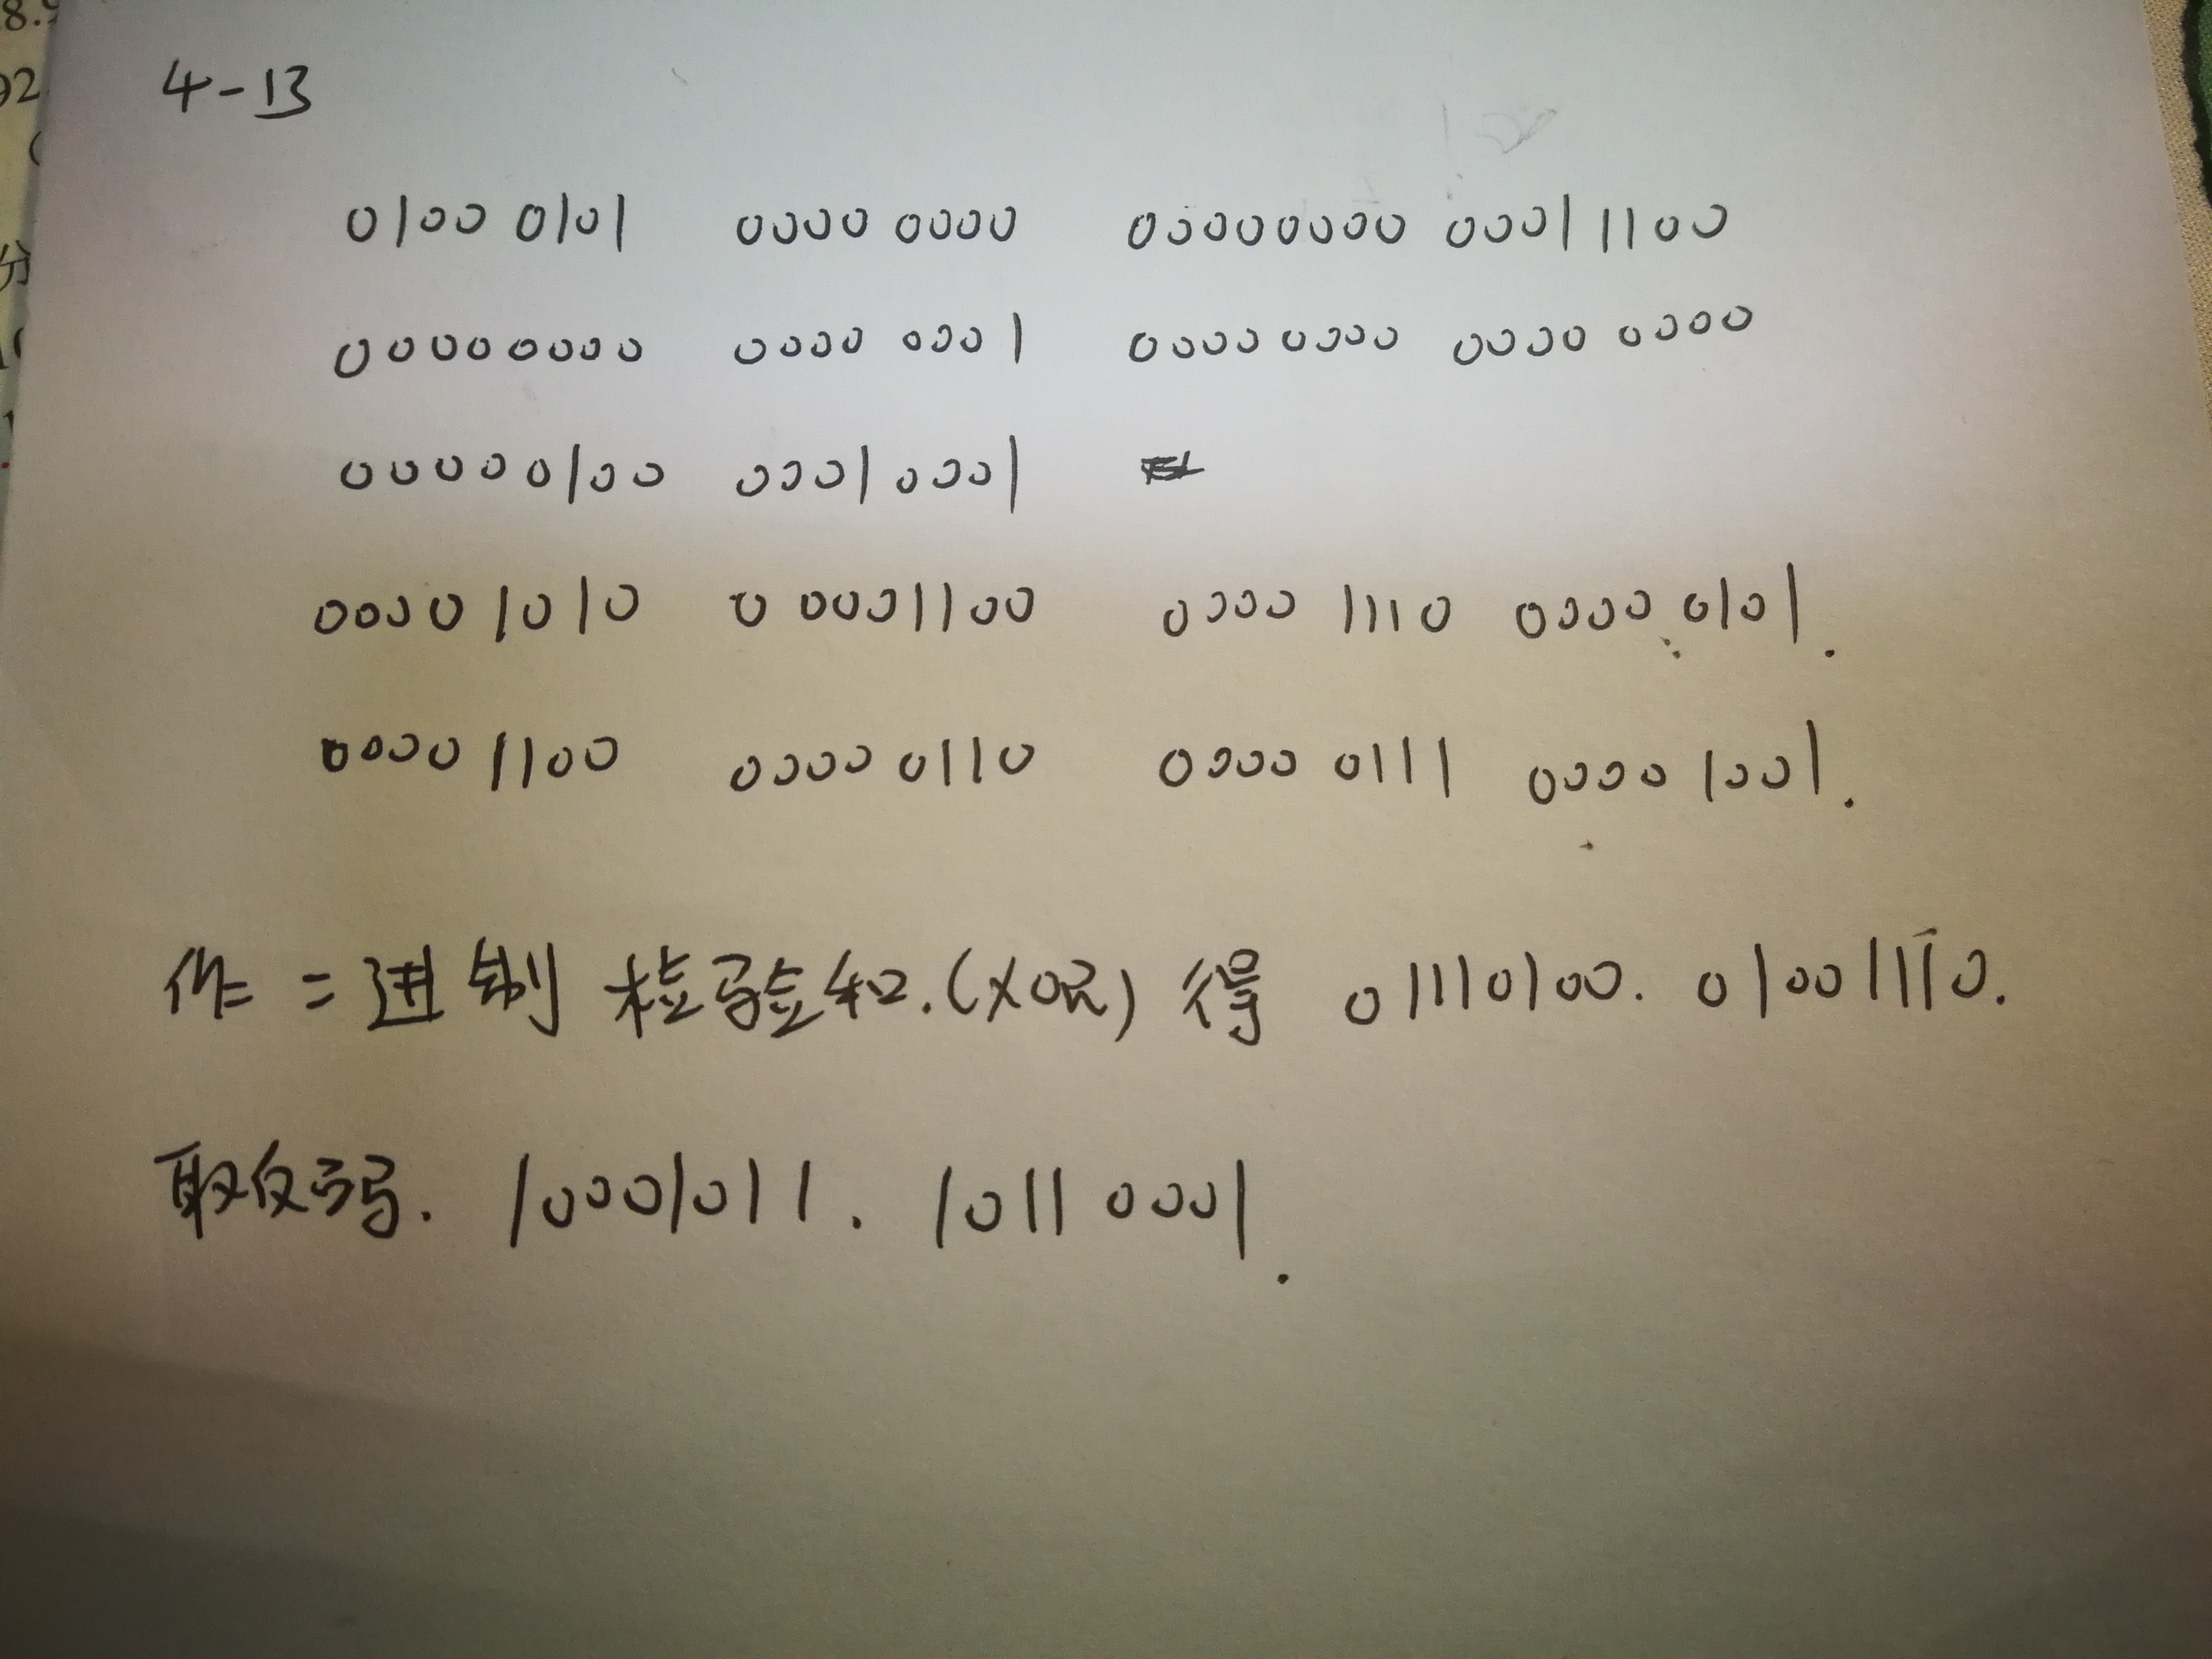 8.9
92
(
分
1(
1
4-13
0100 0101 0000 0000 00000000 0001 1100
00000000 0000 0001 0000 0000 0000 0000
00000100 0001 0001
0000 1010 0 0001100 0000 1110 0000 0101.
0000 1100 0000 0110 0000 0111 0000 1001.
作二进制检验和.(XOR) 得 01110100. 01001110.
取反码. 10001011. 1011 0001.